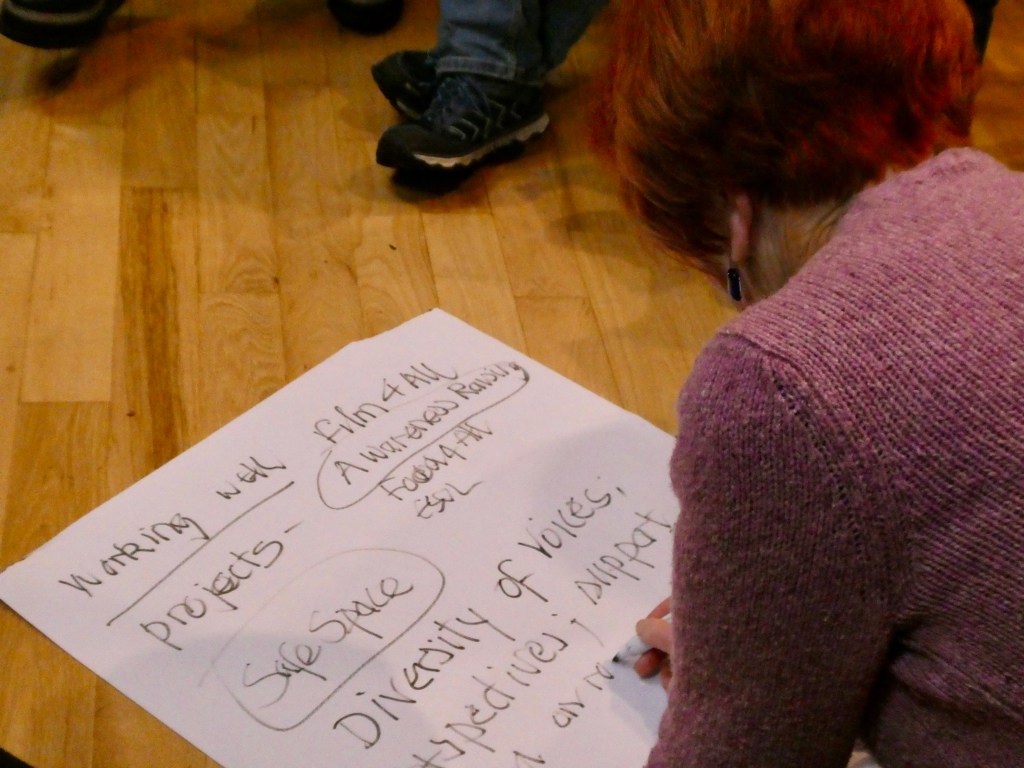 Working well
projects - Film4All
Awareness Raising
Food4All
ESOL
Safe Space
Diversity of voices,
support